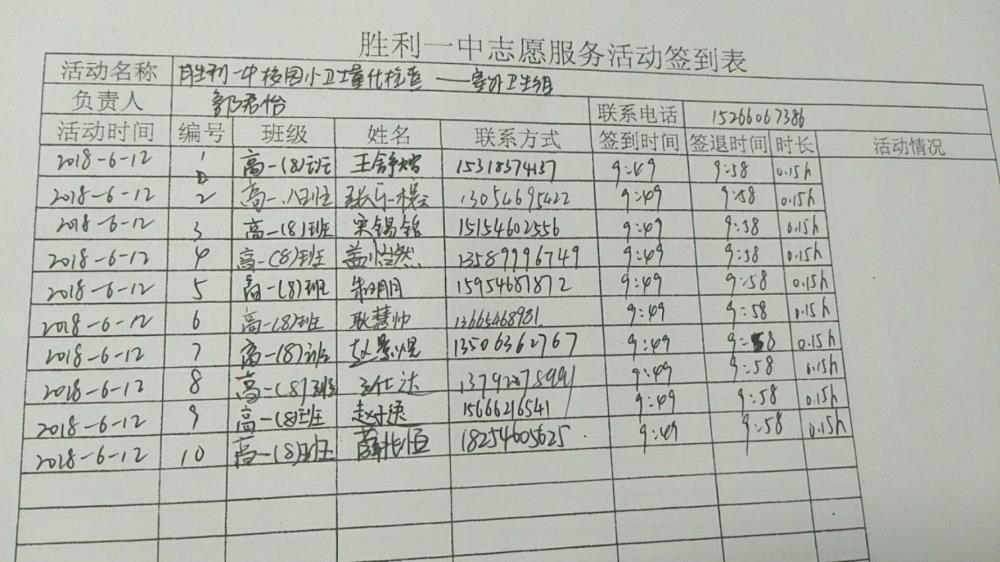 胜利一中志愿服务活动签到表
活动名称 胜利一中校园小卫士量化检查——室外卫生组
负责人 郭君怡 联系电话 15266067386
活动时间 编号 班级 姓名 联系方式 签到时间 签退时间 时长 活动情况
2018-6-12 1 高一(8)班 15318374137 9:49 9:58 0.15h
2018-6-12 2 高一.八班 13054695422 9:49 9:58 0.15h
2018-6-12 3 高一(8)班 宋锡铭 15154602556 9:49 9:58 0.15h
2018-6-12 4 高一(8)班 13589996749 9:49 9:58 0.15h
2018-6-12 5 高一(8)班 15954687872 9:49 9:58 0.15h
2018-6-12 6 高一(8)班 耿慧帅 13665468981 9:49 9:58 0.15h
2018-6-12 7 高一(8)班 13506362767 9:49 9:58 0.15h
2018-6-12 8 高一(8)班 13792078991 9:49 9:58 0.15h
2018-6-12 9 高一(8)班 15666216541 9:49 9:58 0.15h
2018-6-12 10 高一(8)班 18254605625 9:49 9:58 0.15h